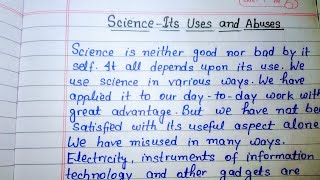 Science-Its Uses and Abuses
Science is neither good nor bad by it
self. It all depends upon its use. We
use science in various ways. We have
applied it to our day-to-day work with
great advantage. But we have not be
satisfied with its useful aspect alone
We have misused in many ways.
Electricity, instruments of information
technology and other gadgets are